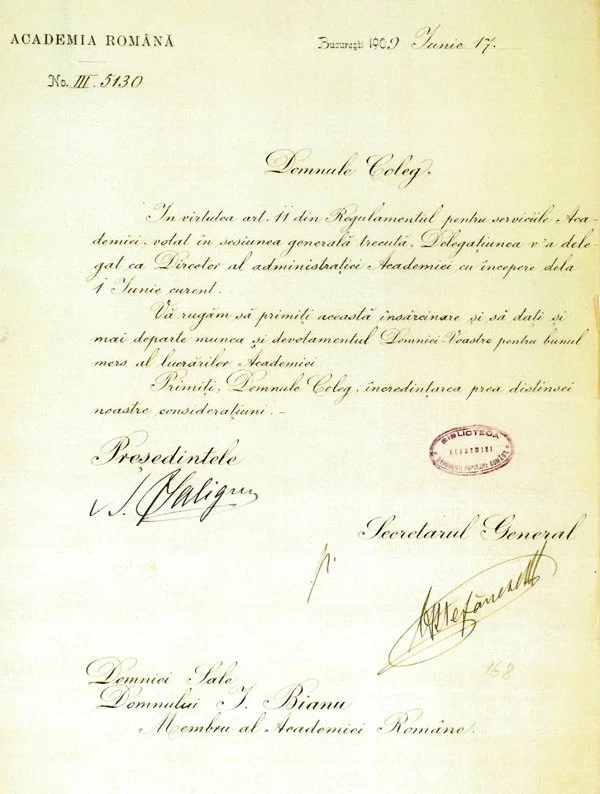 ACADEMIA ROMÂNĂ
București 1909 Iunie 17.
No. III. 5130
Domnule Coleg,
In virtutea art. 11 din Regulamentul pentru serviciile Aca-
demiei, votat în sesiunea generală trecută, Delegațiunea v'a dele-
gat ca Director al administrației Academiei cu începere dela
1 Iunie curent.
Vă rugăm să primiți această însărcinare și să dați și
mai departe munca și devotamentul Domniei-Voastre pentru bunul
mers al lucrărilor Academiei.
Primiți, Domnule Coleg, încredințarea prea distinsei
noastre considerațiuni. -
BIBLIOTECA
ACADEMIEI
REPUBLICII POPULARE ROMÂNE
Președintele
Saligny
Secretarul General
p.
Ștefănescu
168
Domniei Sale
Domnului I. Bianu
Membru al Academiei Române.